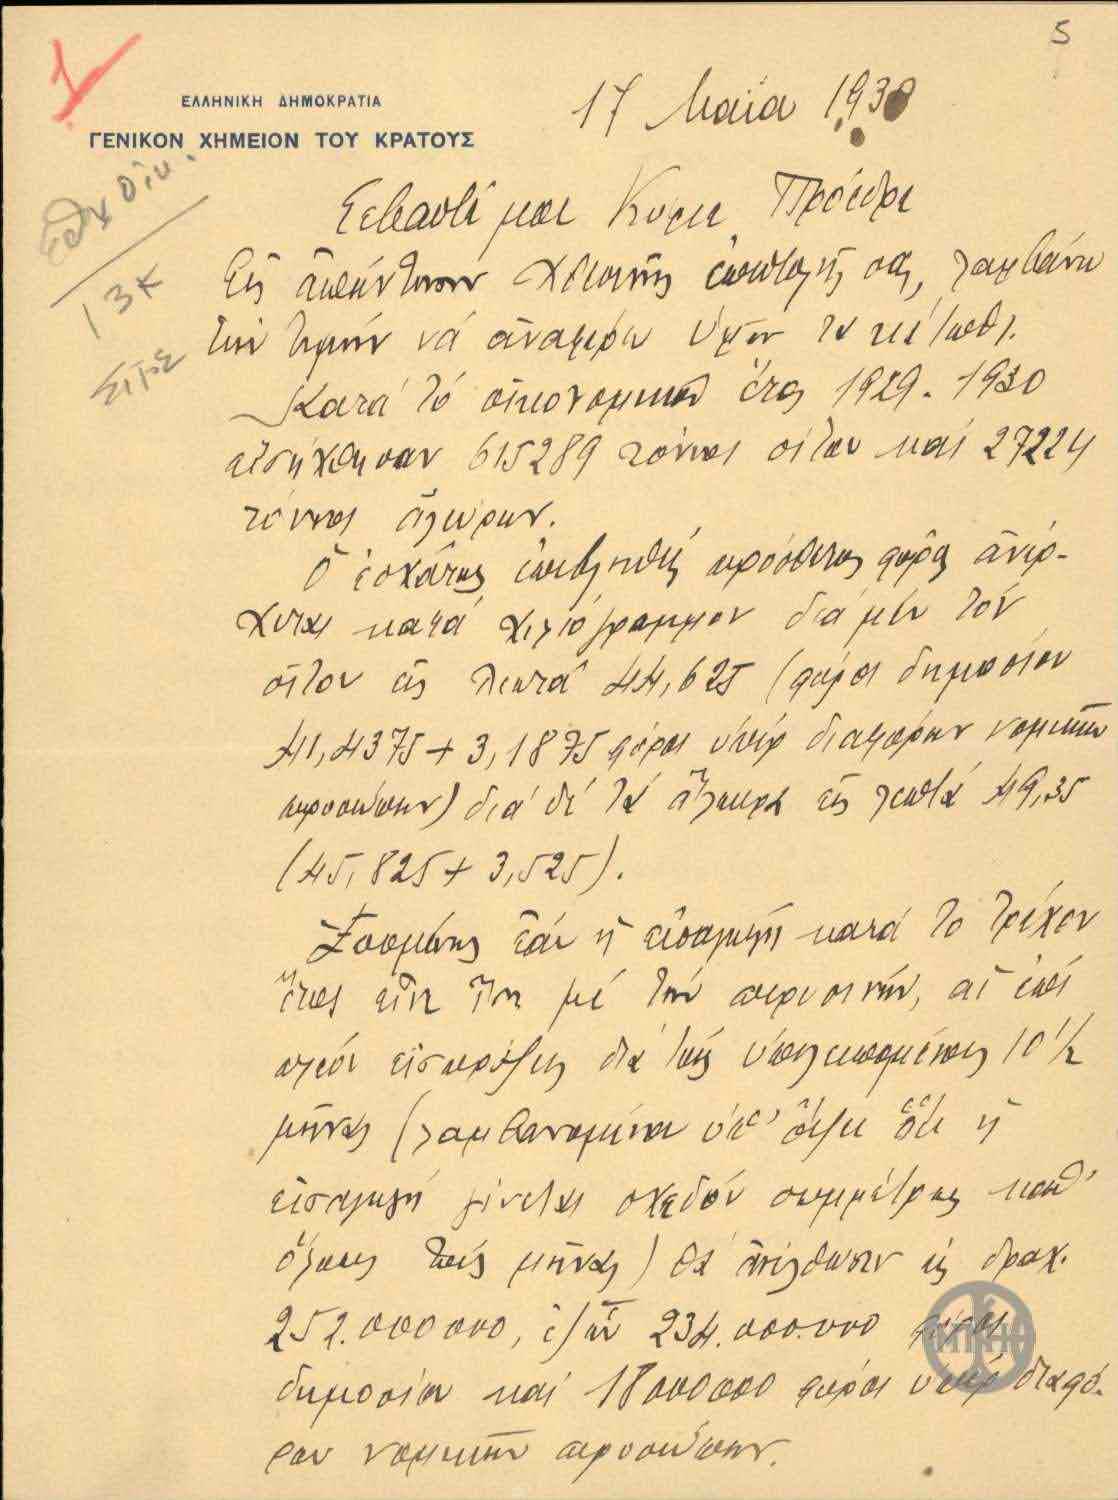 5
ΕΛΛΗΝΙΚΗ ΔΗΜΟΚΡΑΤΙΑ
ΓΕΝΙΚΟΝ ΧΗΜΕΙΟΝ ΤΟΥ ΚΡΑΤΟΥΣ
17 Μαΐου 1930
13κ
Σεβαστέ μοι Κύριε Πρόεδρε
Εἰς ἀπάντησιν χθεσινῆς ἐπιστολῆς σας, λαμβάνω
τὴν τιμὴν νὰ ἀναφέρω ὑμῖν τα
Κατά τό οἰκονομικόν ἔτος 1929-1930
εἰσήχθησαν 615289 τόννοι σίτου καί 27224
τόννοι ἀλεύρων.
Ὁ ἐσχάτως ἐπιβληθείς πρόσθετος φόρος ἀνέρ-
χεται κατά χιλιόγραμμον διά μέν τόν
σῖτον εἰς λεπτά 44,625 (φόροι δημοσίου
41,4375 + 3,1875 φόροι ὑπέρ διαφόρων νομικῶν
προσώπων) διά δέ τά ἄλευρα εἰς λεπτά 49,35
(45,825 + 3,525).
Ἑπομένως ἐάν ἡ εἰσαγωγή κατά το τρέχον
ἔτος εἶνε ἴση μέ τήν περυσινήν, αἱ ἐπί
πλέον εἰσπράξεις διά τούς ὑπολειπομένους 10 ½
μῆνας (λαμβανομένου ὑπ' ὄψει ὅτι ἡ
εἰσαγωγή γίνεται σχεδόν συμμέτρως καθ'
ὅλους τούς μῆνας) θά ἀνέλθωσιν εἰς δραχ.
252.000000, ἐξ ὧν 234.000.000 φόροι
δημοσίου καί 18000000 φόροι ὑπέρ διαφό-
ρων νομικῶν προσώπων.